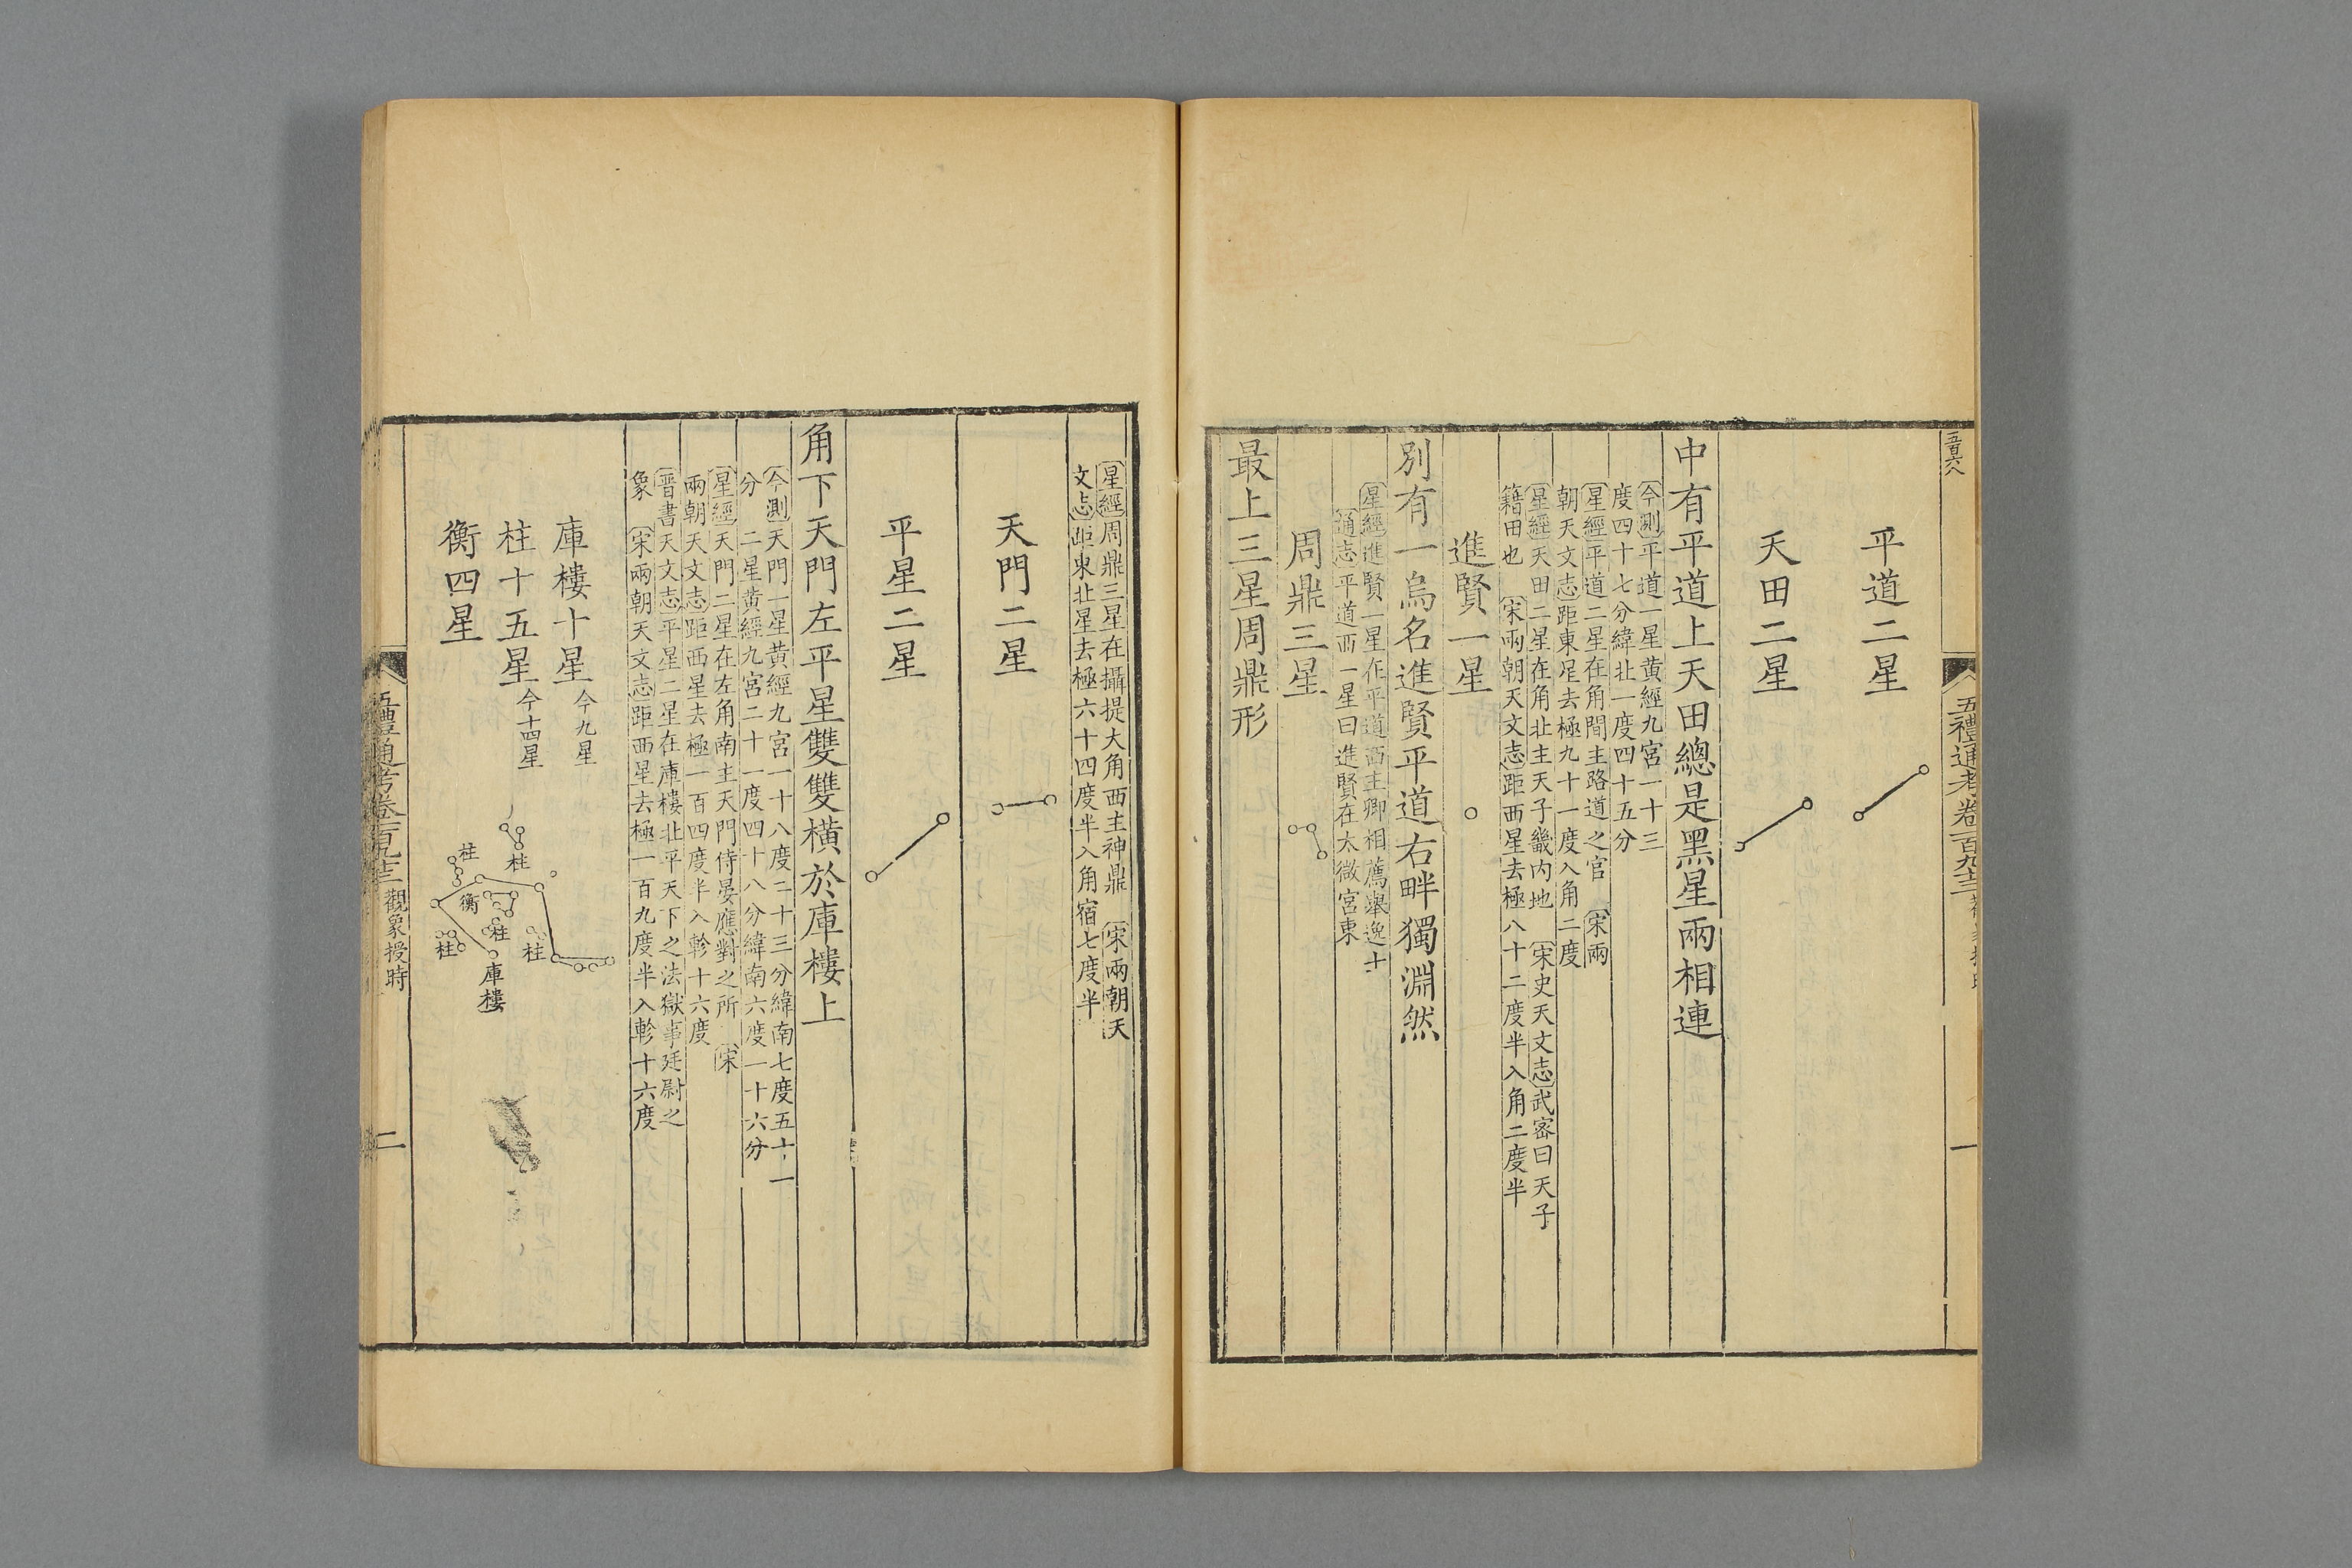 五百六八
五禮通考卷一百九十三
一
平道二星
天田二星
中有平道上天田總是黑星兩相連
今測平道一星黄經九宫一十三
度四十七分緯北一度四十五分
星經平道二星在角間主路道之官 宋兩
朝天文志距東足去極九十一度入角二度
星經天田二星在角北主天子畿内地 宋史天文志武密曰天子
籍田也 宋兩朝天文志距西星去極八十二度半入角二度半
進賢一星
別有一烏名進賢平道右畔獨淵然
星經進賢一星在平道西主卿相薦舉逸士
通志平道西一星曰進賢在太微宮東
周鼎三星
最上三星周鼎形
星經周鼎三星在攝提大角西主神鼎 宋兩朝天
文志距東北星去極六十四度半入角宿七度半
天門二星
平星二星
角下天門左平星雙雙橫於庫樓上
今測天門一星黄經九宫一十八度二十三分緯南七度五十一
分 二星黄經九宫二十一度四十八分緯南六度一十六分
星經天門二星在左角南主天門侍晏應對之所 宋
兩朝天文志距西星去極一百四度半入軫十六度
晋書天文志平星二星在庫樓北平天下之法獄事廷尉之
象 宋兩朝天文志距西星去極一百九度半入軫十六度
庫樓十星今九星
柱十五星今十四星
衡四星
柱
柱
衡
柱
柱
柱
庫樓
五禮通考卷一百九十三 觀象授時
二